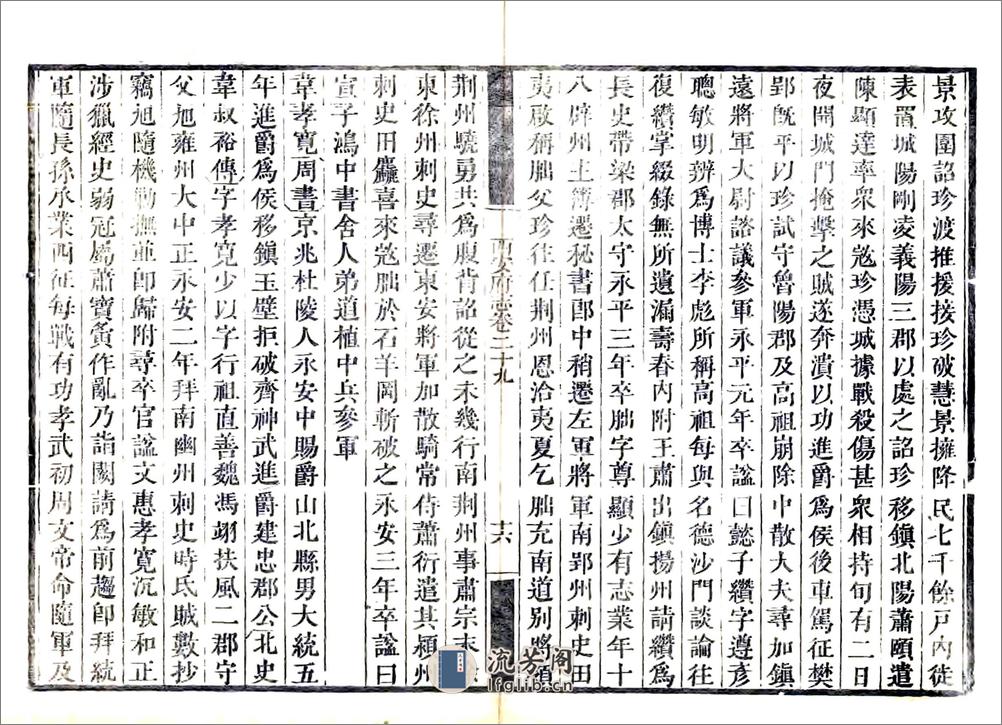 景攻圍詔珍渡推援接珍破慧景擁降民七千餘戸內徙
表置城陽剛淩義陽三郡以處之詔珍移鎮北陽蕭頤遣
陳顯達率衆來寇珍憑城據戰殺傷甚衆相持旬有二日
夜開城門掩擊之賊遂奔潰以功進爵爲侯後車駕征樊
鄧旣平以珍試守魯陽郡及高祖崩除中散大夫尋加鎮
遠將軍大尉諮議參軍永平元年卒諡曰懿子纘字遵彥
聰敏明辨爲博士李彪所稱高祖每與名德沙門談論往
復纘掌綴錄無所遺漏壽春內附王肅出鎮揚州請纘爲
長史帶梁郡太守永平三年卒朏字尊顯少有志業年十
八辟州主簿遷秘書郎中稍遷左軍將軍南郢州刺史田
夷啟稱朏父珍往任荆州恩洽夷夏乞朏充南道別將領
西安府志卷三十九
十六
荆州驍勇共爲腹背詔從之未幾行南荆州事肅宗末
東徐州刺史尋遷東安將軍加散騎常侍蕭衍遣其潁州
刺史田麤喜來寇朏於石羊岡斬破之永安三年卒諡曰
宣子鴻中書舍人弟道植中兵參軍
韋孝寬周書京兆杜陵人永安中賜爵山北縣男大統五
年進爵爲侯移鎮玉壁拒破齊神武進爵建忠郡公北史
韋叔裕傳字孝寬少以字行祖直善魏馮翊扶風二郡守
父旭雍州大中正永安二年拜南豳州刺史時氏賊數抄
竊旭隨機勦撫並卽歸附尋卒官諡文惠孝寬沉敏和正
涉獵經史弱冠屬蕭寶夤作亂乃詣闕請爲前趨卽拜統
軍隨長孫承業西征每戰有功孝武初周文帝命隨軍及
流芳閣
lfglib.cn